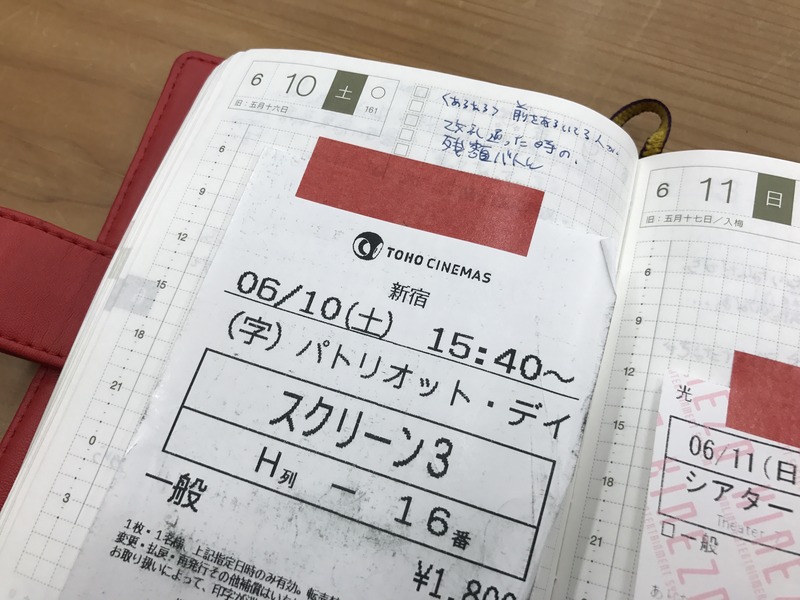 6 10 土
旧:五月十六日 161
<あるある> 前をあるいてる人が、
改札通った時の、
残額バトル
6
9
12
15
18
21
0
3
TOHO CINEMAS
新宿
06/10(土) 15:40～
(字) パトリオット・デイ
スクリーン3
H列 － 16番
一般
¥1,800
1枚・1名様 上記指定日時のみ有効。
変更・払戻・再発行その他補償は
お取り扱いによって、印字が
6 11 日
旧:五月十七日/入梅
6
9
12
15
18
21
光
06/11(日
シアター
Theater
一般